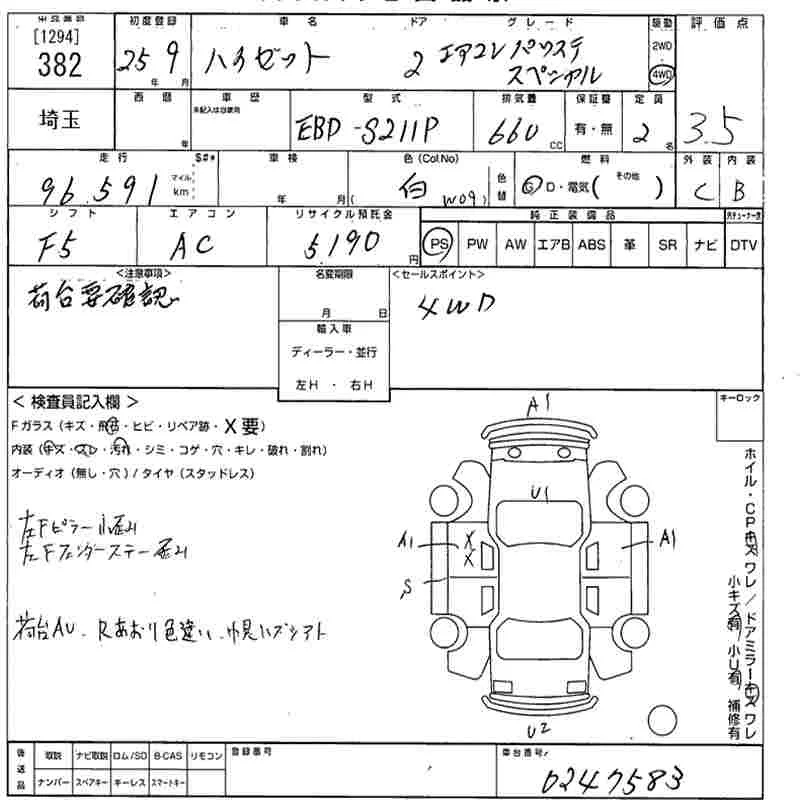 [1294]
382
初度登録
25 年 9 月
車名
ハイゼット
ドア
2
グレード
エアコン パワステ
スペシャル
駆動
2WD
4WD
評価点
3.5
埼玉
西暦
年
車歴
未記入は自家用
型式
EBD-S211P
排気量
660 CC
保証書
有・無
定員
2 名
走行
96,591
マイル
km
S#*
車検
年 月
色(Col.No)
白 (W09)
色替
燃料
G D・電気( その他 )
外装
C
内装
B
シフト
F5
エアコン
AC
リサイクル預託金
5190 円
純正装備品
PS PW AW エアB ABS 革 SR ナビ
DTV
<注意事項>
荷台要確認
名変期限
月 日
輸入車
ディーラー・並行
左H ・ 右H
<セールスポイント>
4WD
< 検査員記入欄 >
Fガラス (キズ・飛石・ヒビ・リペア跡・X要)
内装 (キズ・スレ・汚れ・シミ・コゲ・穴・キレ・破れ・割れ)
オーディオ (無し・穴) / タイヤ (スタッドレス)
左Fピラー小歪み
左Fフェンダーステー歪み
荷台AU、Rあおり色違い、
キーロック
A1
U1
A1
X
X
S
A1
U2
ホイル・CPキズワレ/ドアミラーキズワレ
小キズ有/小U有/補修有
後送品
取説 ナビ取説 ロム/SD B-CAS リモコン
ナンバー スペアキー キーレス スマートキー
登録番号
車台番号
0247583